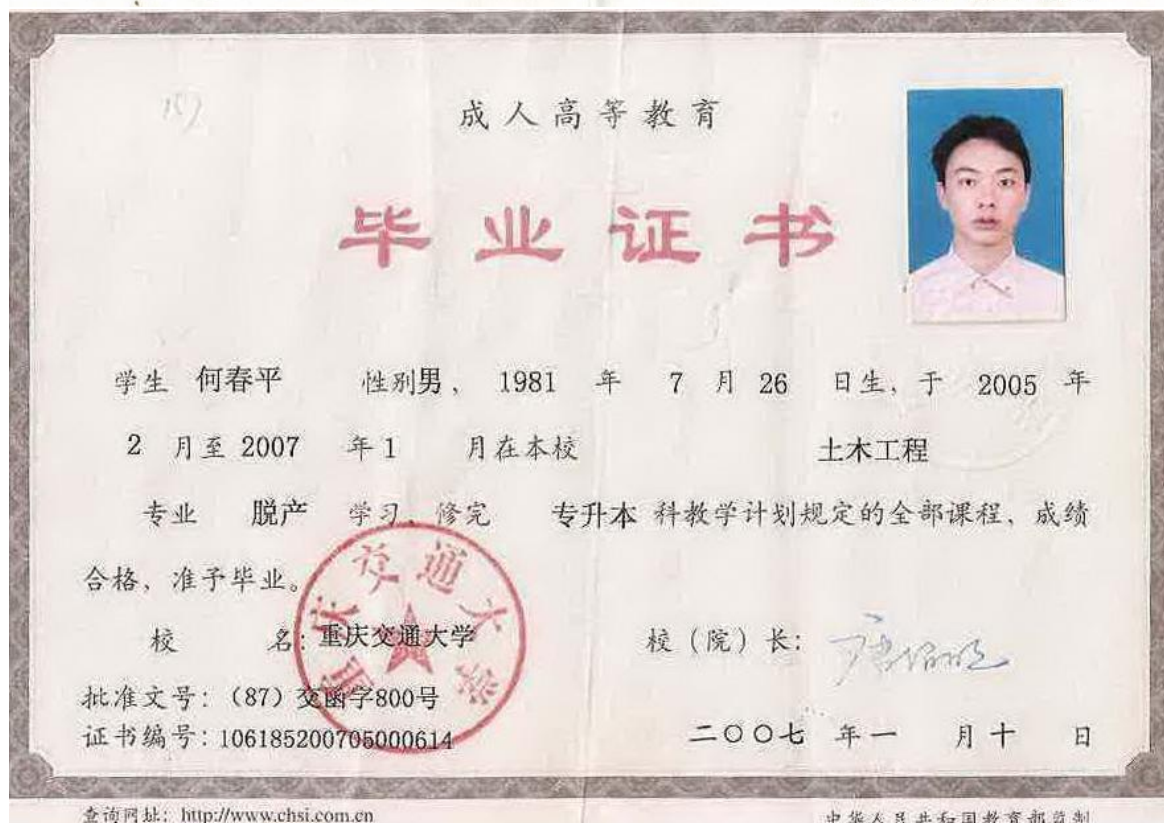 成人高等教育
毕业证书
学生 何春平 性别男、 1981 年 7 月 26 日生，于 2005 年
2 月至 2007 年 1 月在本校 土木工程
专业 脱产 学习、修完 专升本 科教学计划规定的全部课程、成绩
合格、准予毕业。
校 名：重庆交通大学 校（院）长：
重庆交通大学
批准文号：（87）交函字800号
证书编号：106185200705000614 二〇〇七 年一 月十 日
查询网址：http://www.chsi.com.cn 中华人民共和国教育部监制